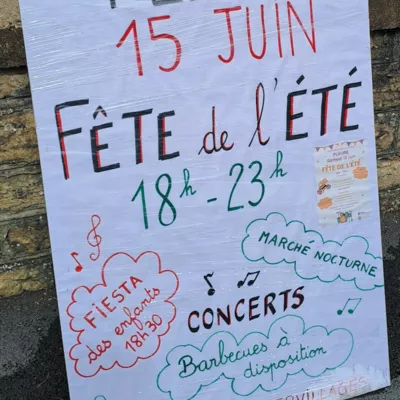 15 JUIN
FÊTE de l'ÉTÉ
18h - 23h
FÊTE DE L'ÉTÉ
MARCHÉ NOCTURNE
FIESTA
des enfants
18h30
CONCERTS
Barbecues à
disposition